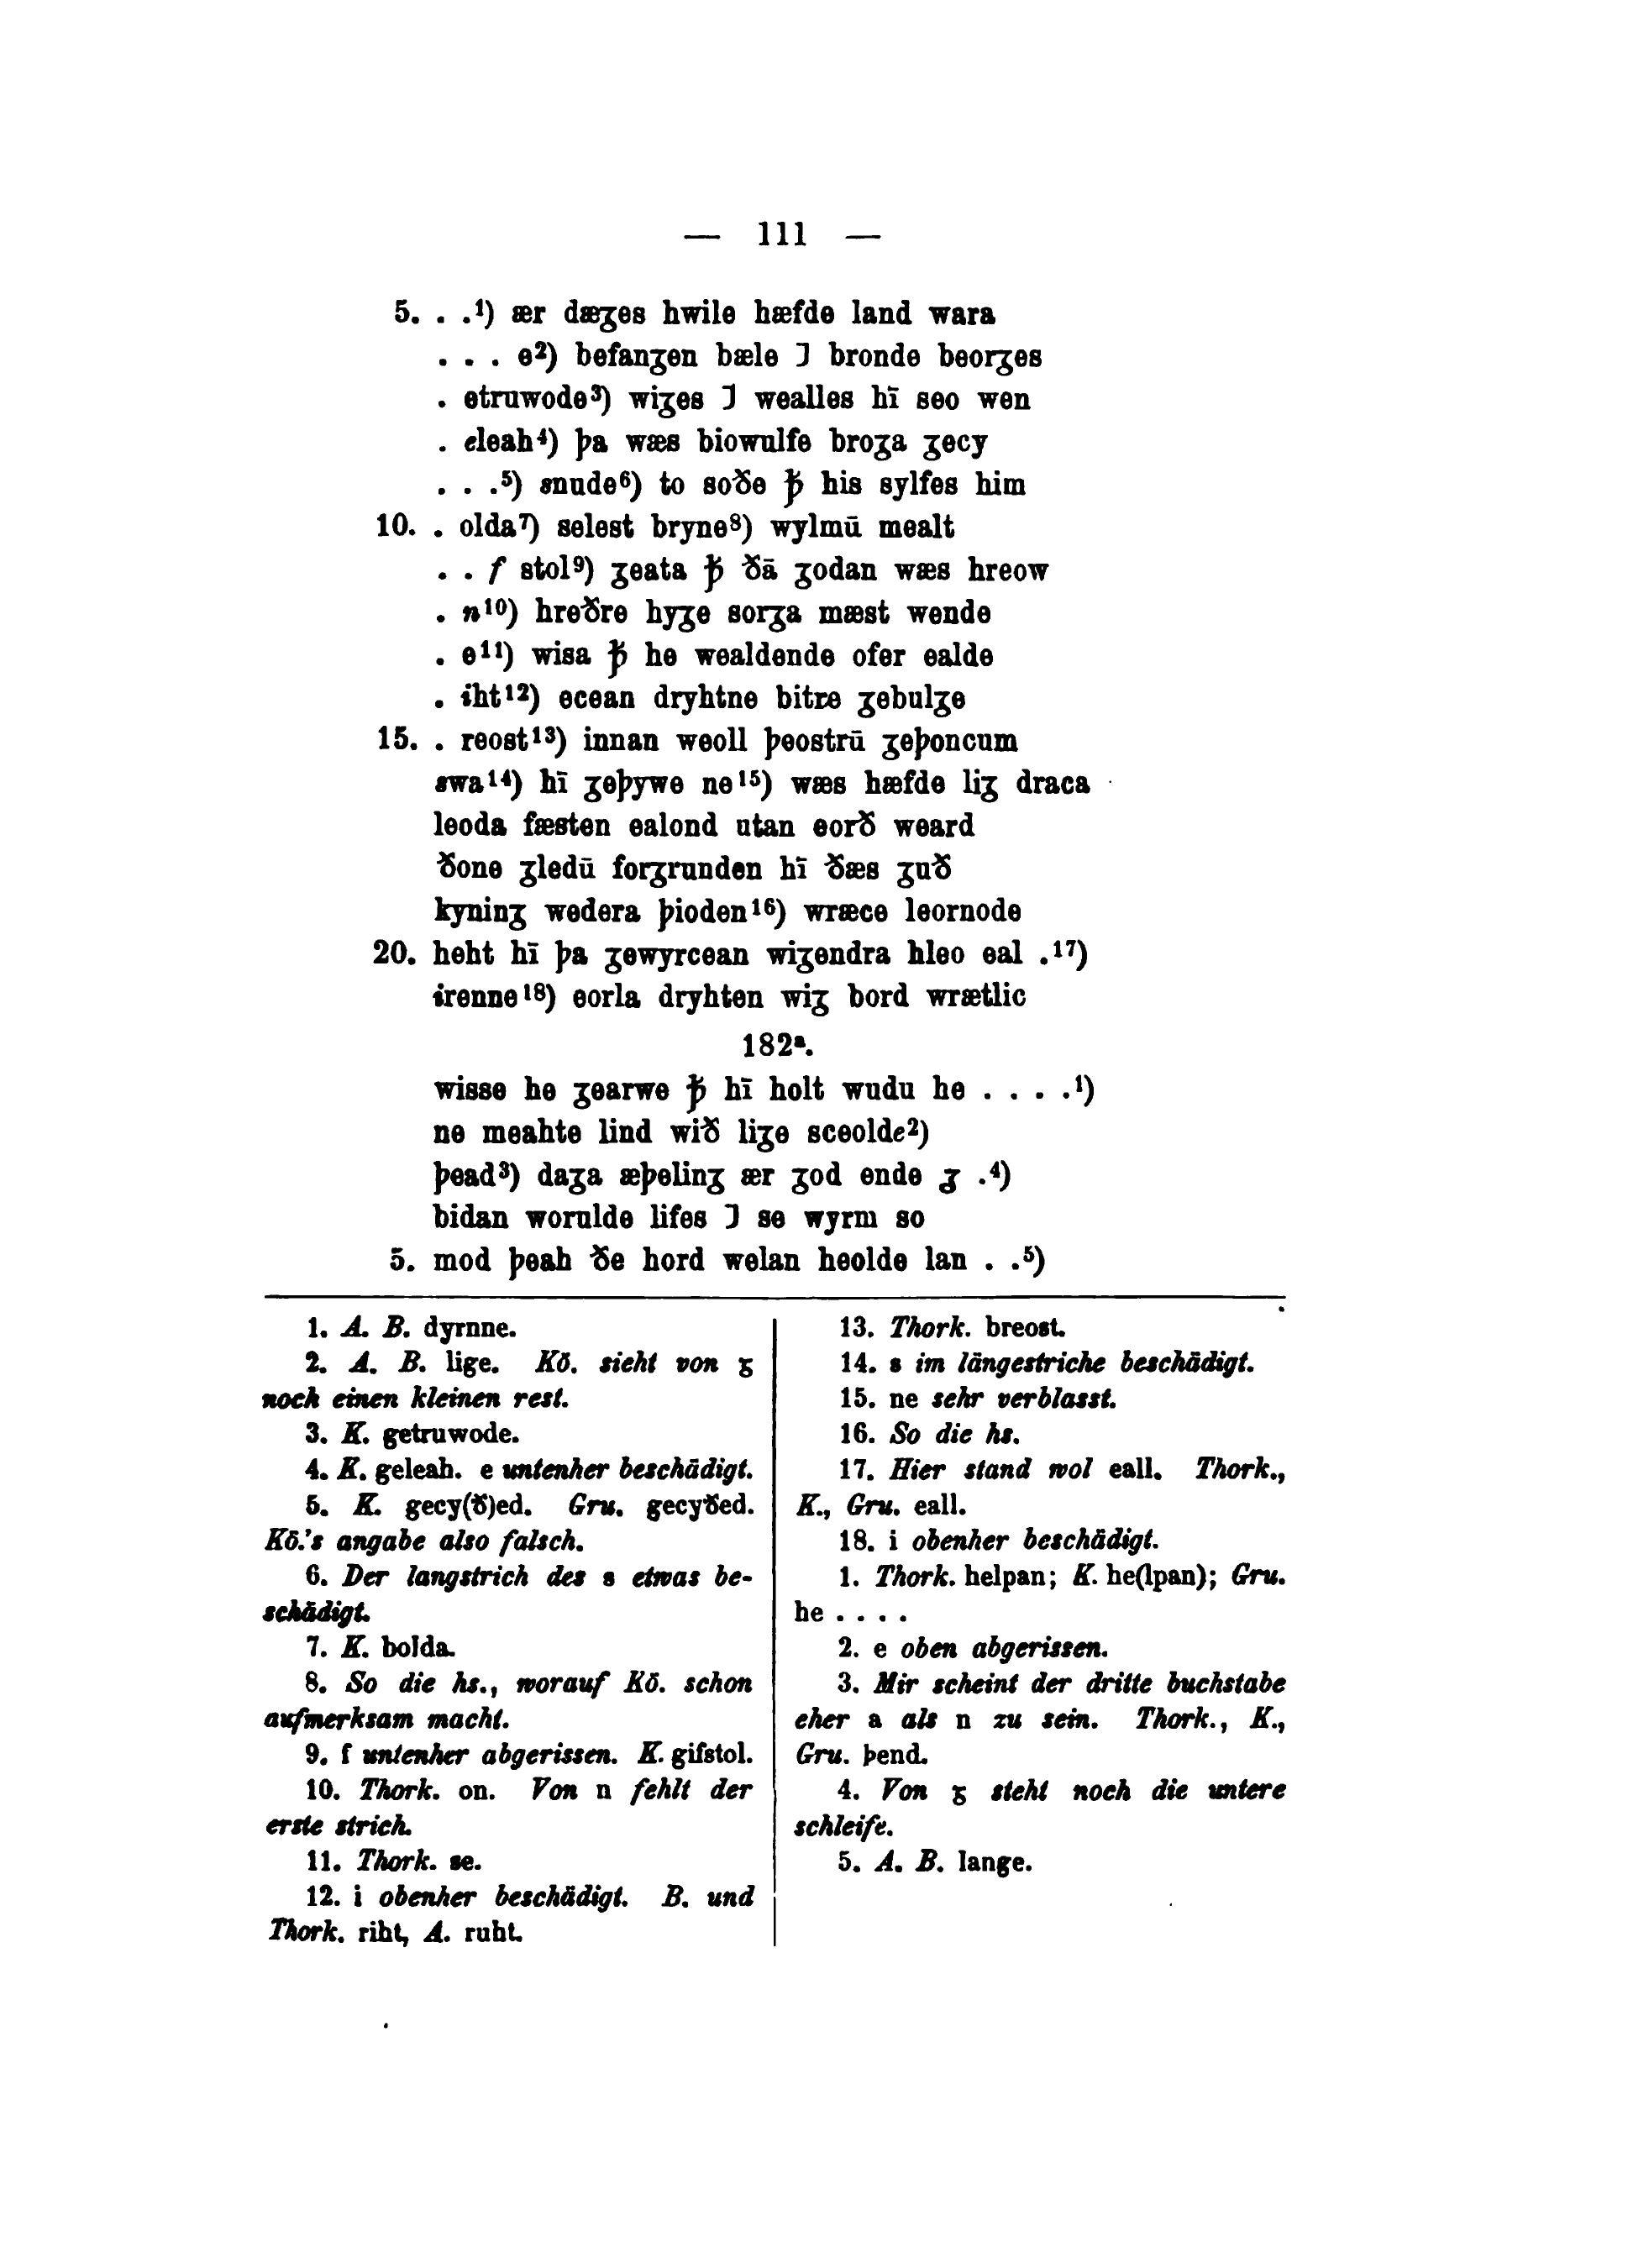 — 111 —
5. . .¹) ær dæʒes hwile hæfde land wara
. . . e²) befanʒen bæle ⁊ bronde beorʒes
. etruwode³) wiʒes ⁊ wealles hī seo wen
. eleah⁴) þa wæs biowulfe broʒa ʒecy
. . .⁵) snude⁶) to soðe ꝥ his sylfes him
10. . olda⁷) selest bryne⁸) wylmū mealt
. . f stol⁹) ʒeata ꝥ ðā ʒodan wæs hreow
. n¹⁰) hreðre hyʒe sorʒa mæst wende
. e¹¹) wisa ꝥ he wealdende ofer ealde
. iht¹²) ecean dryhtne bitre ʒebulʒe
15. . reost¹³) innan weoll þeostrū ʒeþoncum
swa¹⁴) hī ʒeþywe ne¹⁵) wæs hæfde liʒ draca
leoda fæsten ealond utan eorð weard
ðone ʒledū forʒrunden hī ðæs ʒuð
kyninʒ wedera þioden¹⁶) wræce leornode
20. heht hī þa ʒewyrcean wiʒendra hleo eal .¹⁷)
irenne¹⁸) eorla dryhten wiʒ bord wrætlic
182ᵃ.
wisse he ʒearwe ꝥ hī holt wudu he . . . .¹)
ne meahte lind wið liʒe sceolde²)
þead³) daʒa æþelinʒ ær ʒod ende ʒ .⁴)
bidan worulde lifes ⁊ se wyrm so
5. mod þeah ðe hord welan heolde lan . .⁵)
1. A. B. dyrnne.
2. A. B. lige. Kö. sieht von ʒ
noch einen kleinen rest.
3. K. getruwode.
4. K. geleah. e untenher beschädigt.
5. K. gecy(ð)ed. Gru. gecyðed.
Kö.'s angabe also falsch.
6. Der langstrich des s etwas be-
schädigt.
7. K. bolda.
8. So die hs., worauf Kö. schon
aufmerksam macht.
9. f untenher abgerissen. K. gifstol.
10. Thork. on. Von n fehlt der
erste strich.
11. Thork. se.
12. i obenher beschädigt. B. und
Thork. riht, A. ruht.
13. Thork. breost.
14. s im längestriche beschädigt.
15. ne sehr verblasst.
16. So die hs.
17. Hier stand wol eall. Thork.,
K., Gru. eall.
18. i obenher beschädigt.
1. Thork. helpan; K. he(lpan); Gru.
he . . . .
2. e oben abgerissen.
3. Mir scheint der dritte buchstabe
eher a als n zu sein. Thork., K.,
Gru. þend.
4. Von ʒ steht noch die untere
schleife.
5. A. B. lange.